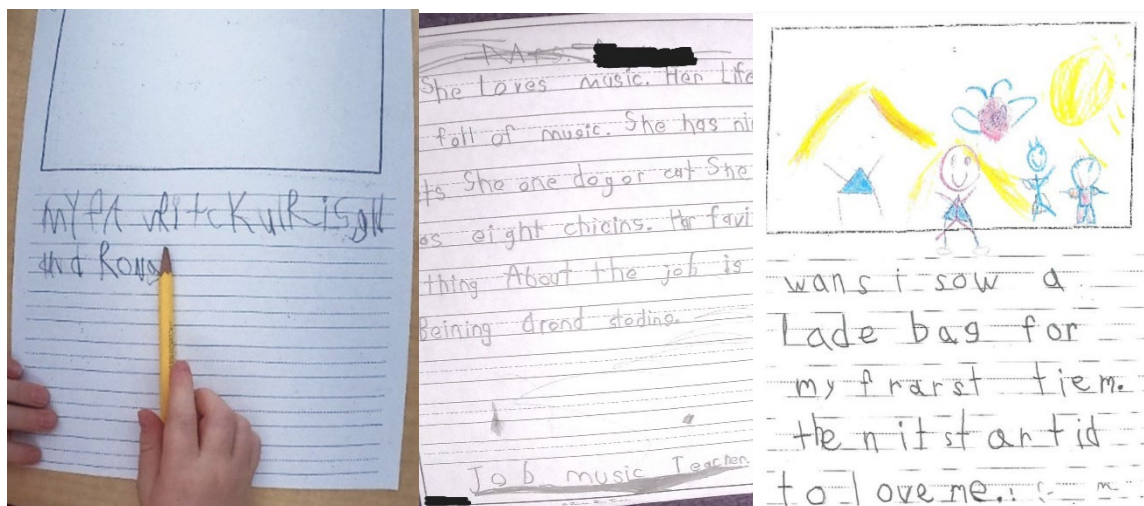 MY fA vRitcKulRiSgN
and Rong
Mrs.
She Loves music. Her Life
fall of music. She has ni
ts She one dog or cat She
as eight chicins. Her favi
thing About the job is
Beining drond stoding.
Job music Teacher
wans i sow a
Lade bag for
my frarst tiem.
the n it st an tid
to love me.